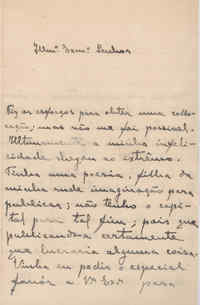 Illmo. Exmo. Senhor
Fiz os esforços para obter uma collo-
cação; mas não me foi possivel.
Ultimamente a minha infeli-
cidade chegou ao extremo.
Tenho uma poesia, filha da
minha rude imaginação para
publicar; não tenho o capi-
tal para tal fim; pois que
publicando-a certamente
me lucraria alguma coisa.
Vinha eu pedir o especial
favôr a V. Exª para